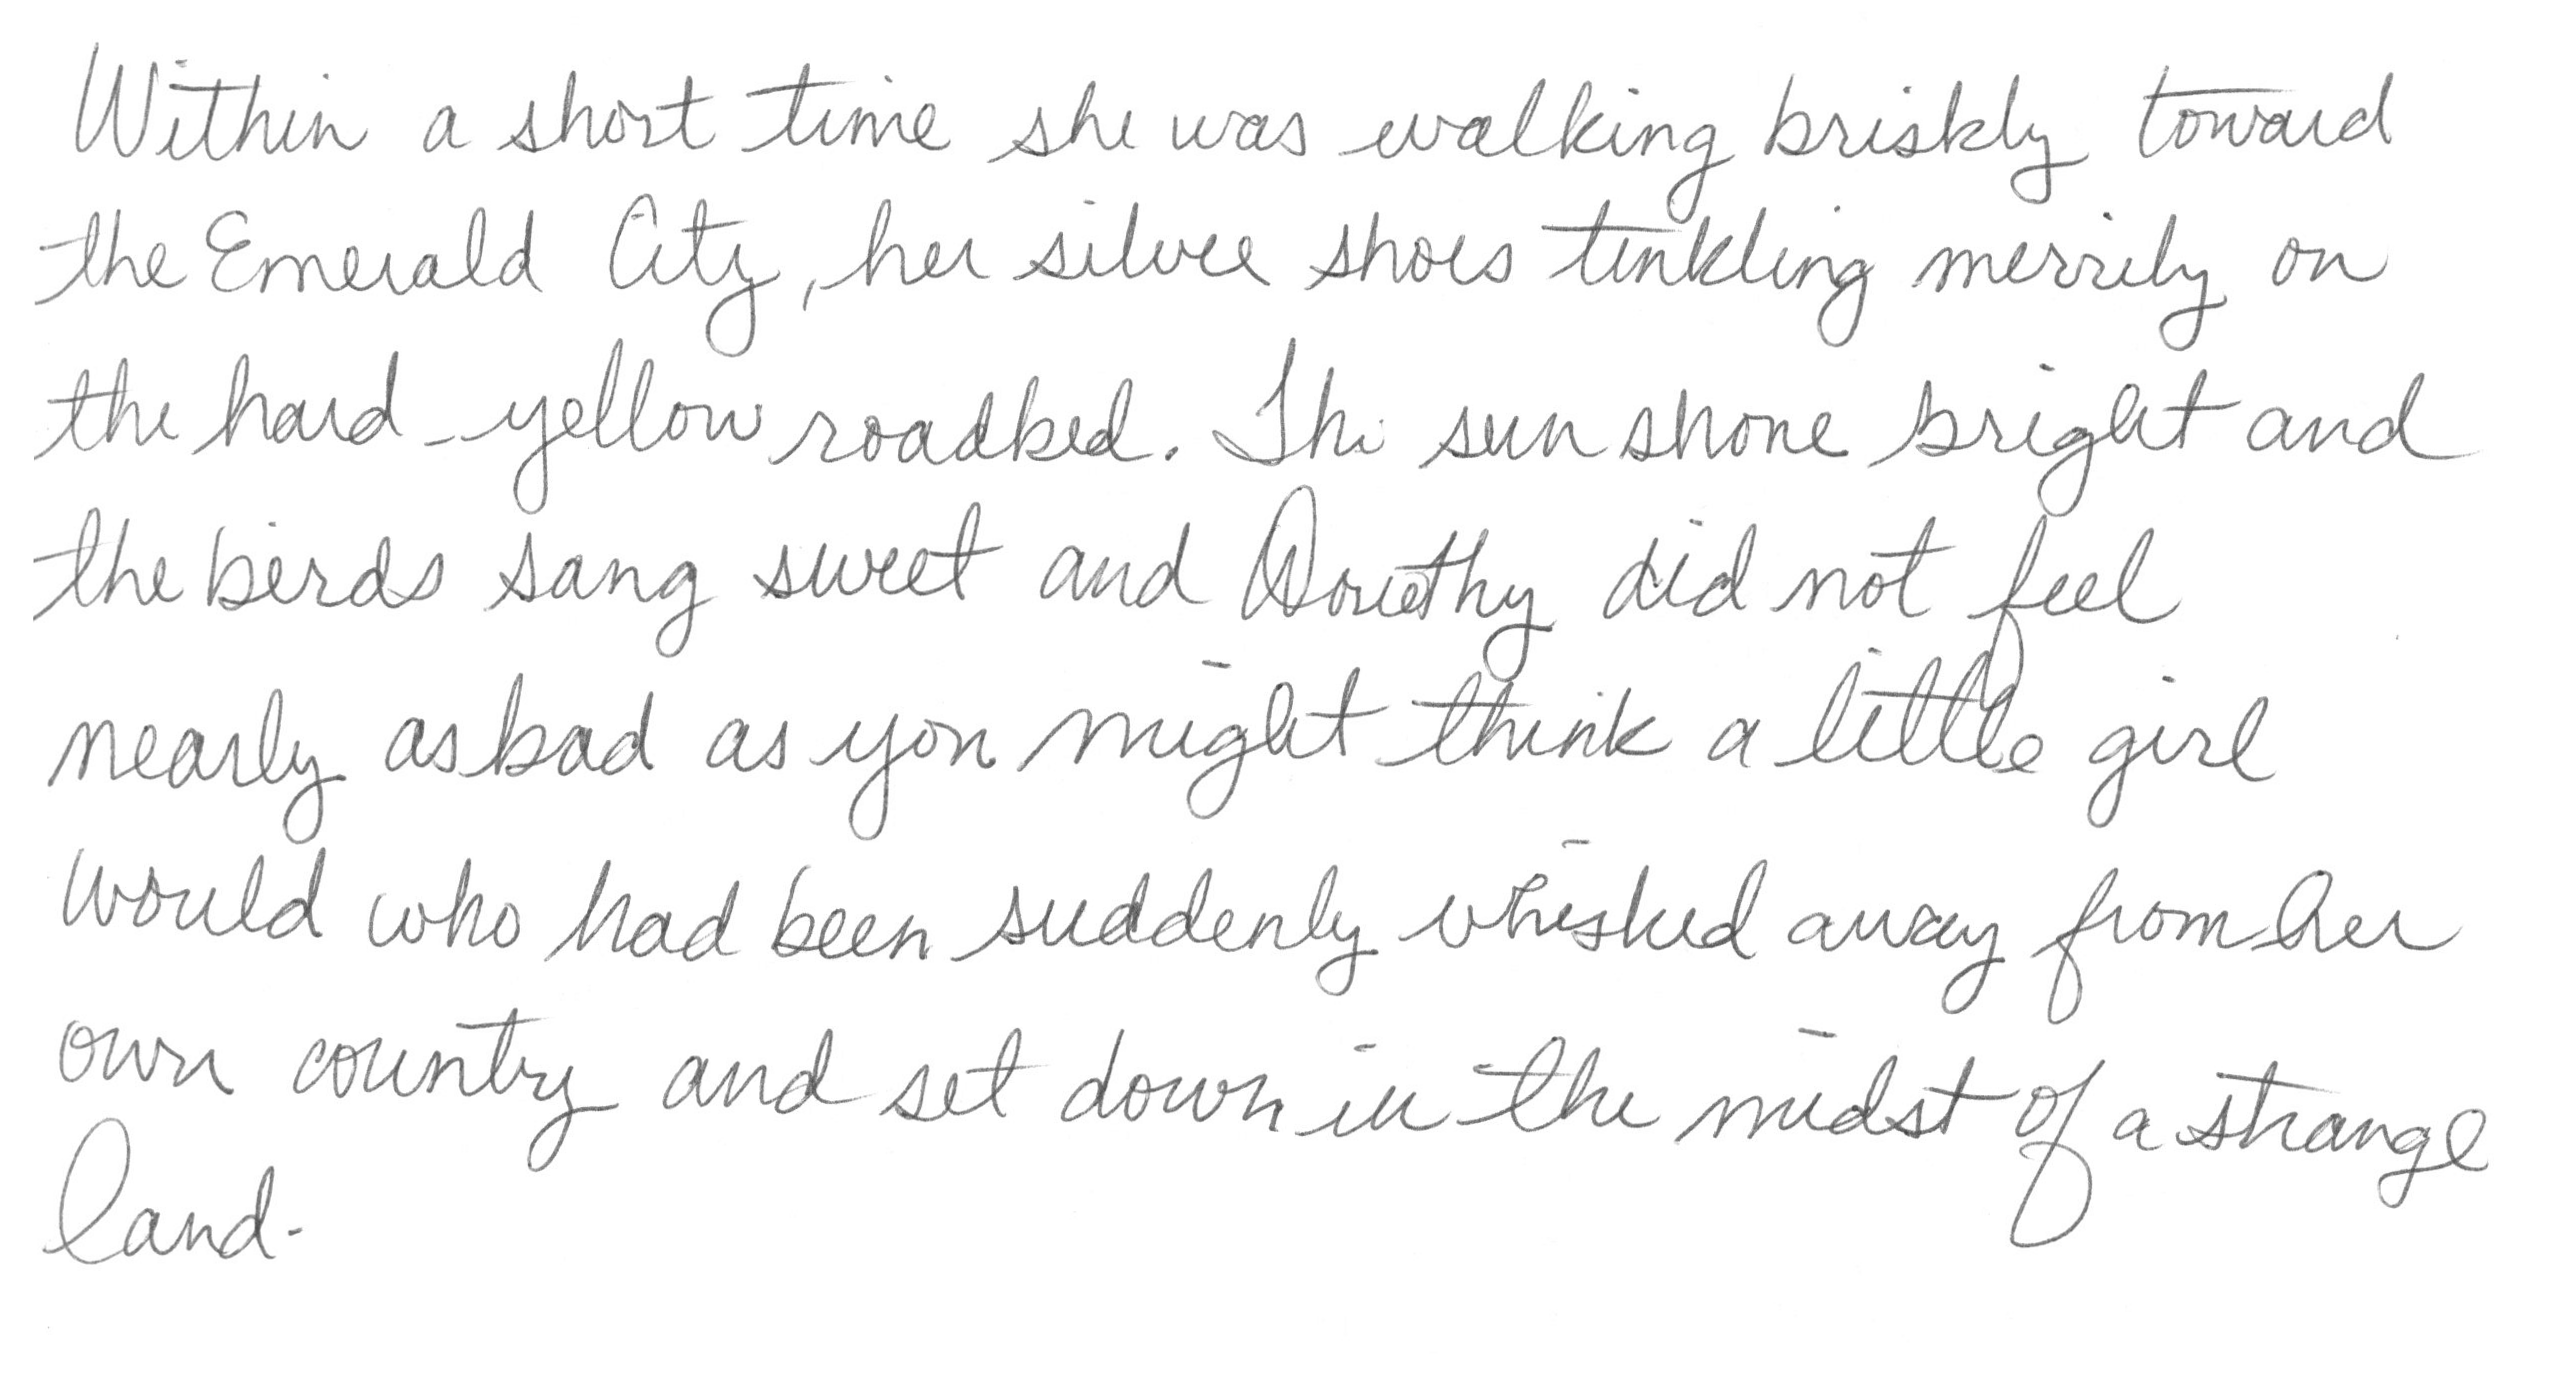 Within a short time she was walking briskly toward
the Emerald City, her silver shoes tinkling merrily on
the hard-yellow roadbed. The sun shone bright and
the birds sang sweet and Dorothy did not feel
nearly as bad as you might think a little girl
would who had been suddenly whisked away from her
own country and set down in the midst of a strange
land.